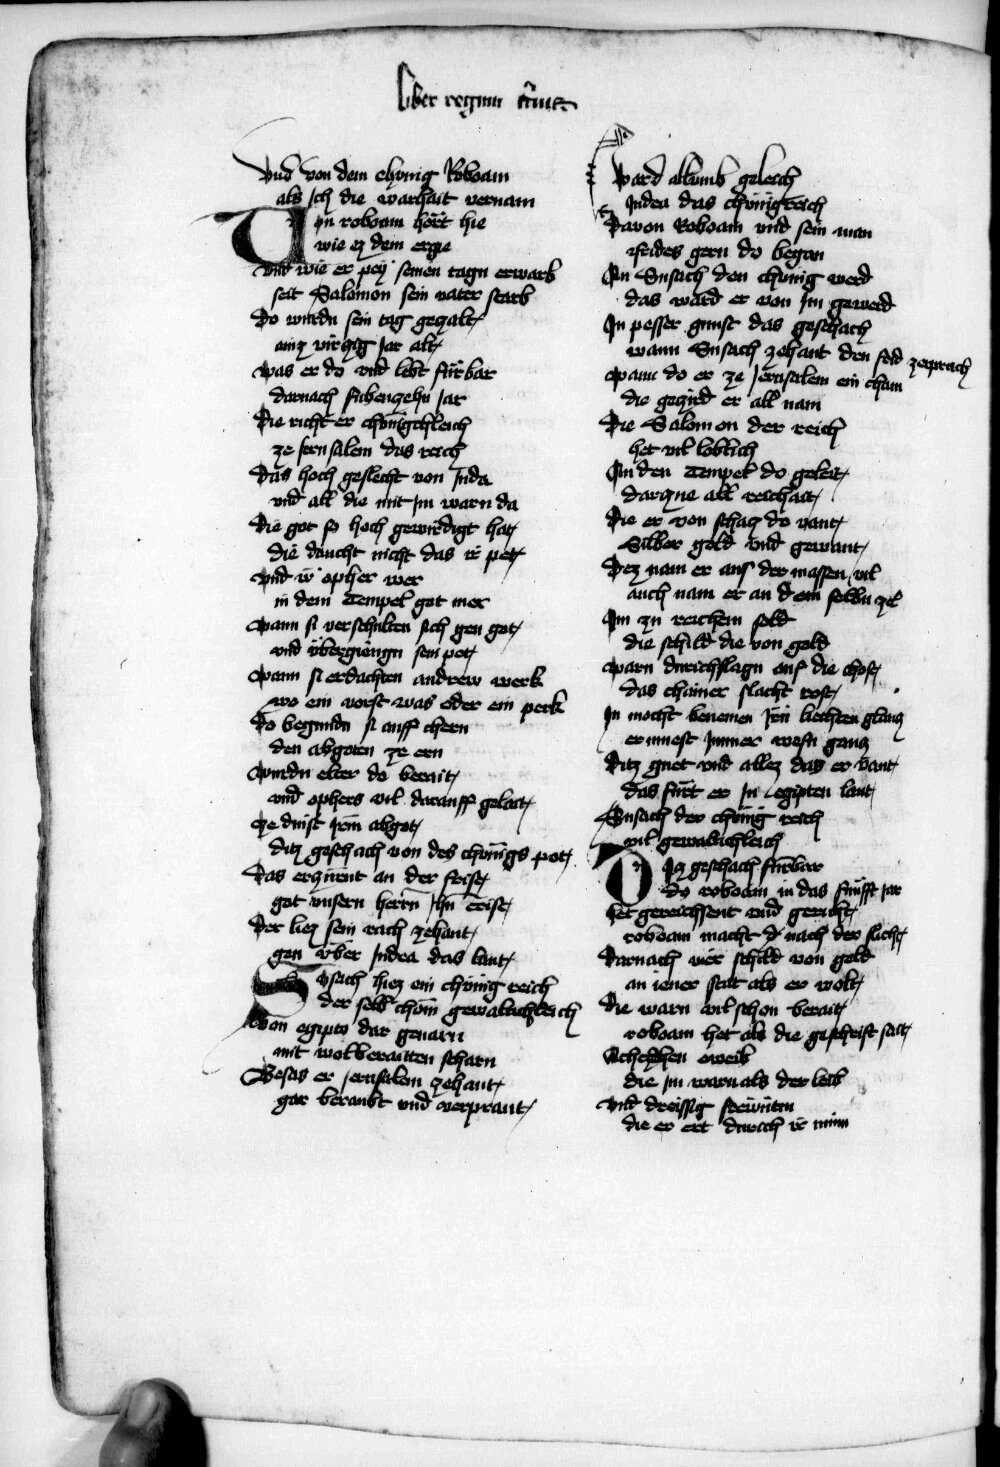 Liber regum tercius
Vnd von dem chünig Roboam
als sich die warhait vernam
Un roboam hört hie
wie ez dem ergie
Vnd wie er pey seinen tagn erwarb
seit Salomon sein vater starb
Do wurdn sein tag gezalt
ainz virczig jar alt
Was er do vnd lebt fürbar
darnach sibenzehn jar
Die richt er chünigchleich
ze jerusalem das reich
Das hoch geslecht von Juda
vnd all die mit jm warn da
Die got so hoch gewirdigt hat
die daucht nicht das ir pet
Vnd ir opher wer
in dem Tempel got mer
Wann si verschulten sich gen got
vnd übergiengn sein pot
Wann si erdachten andrew werk
wo ein vorst was oder ein perk
Do begundn si auff chern
den abgoten ze ern
Wurdn elter do berait
vnd ophers vil darauff gelait
Ze dinst jrm abgot
ditz geschach von des chünigs pot
Das erzürent an der frist
got vnsern herrn jhu crist
Der liez sein rach zehant
gen über Judea das lant
Susach hiez ein chünig reich
der selb chom gewaltichleich
Von egipto dar geuarn
mit wolberaitten scharn
Besas er jerusalem zehant
gar beraubt vnd verprant
Ward allumb geleich
Judea das chünigreich
Davon Roboam vnd sein man
frides gern do began
An Susach den chünig werd
das ward er von jm gewerd
In pesser gunst das geschach
wann Susach zehant den frid zerprach
Wann do er ze jerusalem ein cham
die gezird er all nam
Die Salomon der reich
het vil loblich
In den Tempel do geleit
darzue all reichait
Die er von schaz do vant
Silber gold vnd gewant
Dez nam er aus der massen vil
auch nam er an dem selbn zil
Im zu reichem sold
die schild die von gold
Warn durichslagn aus die chost
das chainer slacht rost
In mocht benemen jrn liechten glanz
er muest jmmer wesn ganz
Ditz guet vnd allez das er vant
das fürt er jn egipten lant
Susach der chünig reich
vil gewaltichleich
Diz geschach fürbar
do roboam in das fünfft jar
Het gereichsent vnd gericht
roboam macht d' nach der slicht
Darnach vier schild von gold
an iener stat als er wolt
Die warn vil schon berait
roboam het als die geschrift sait
Achczehen eweib
die jm warn als der leib
Vnd dreissig frewntin
die er ert durich ir minn